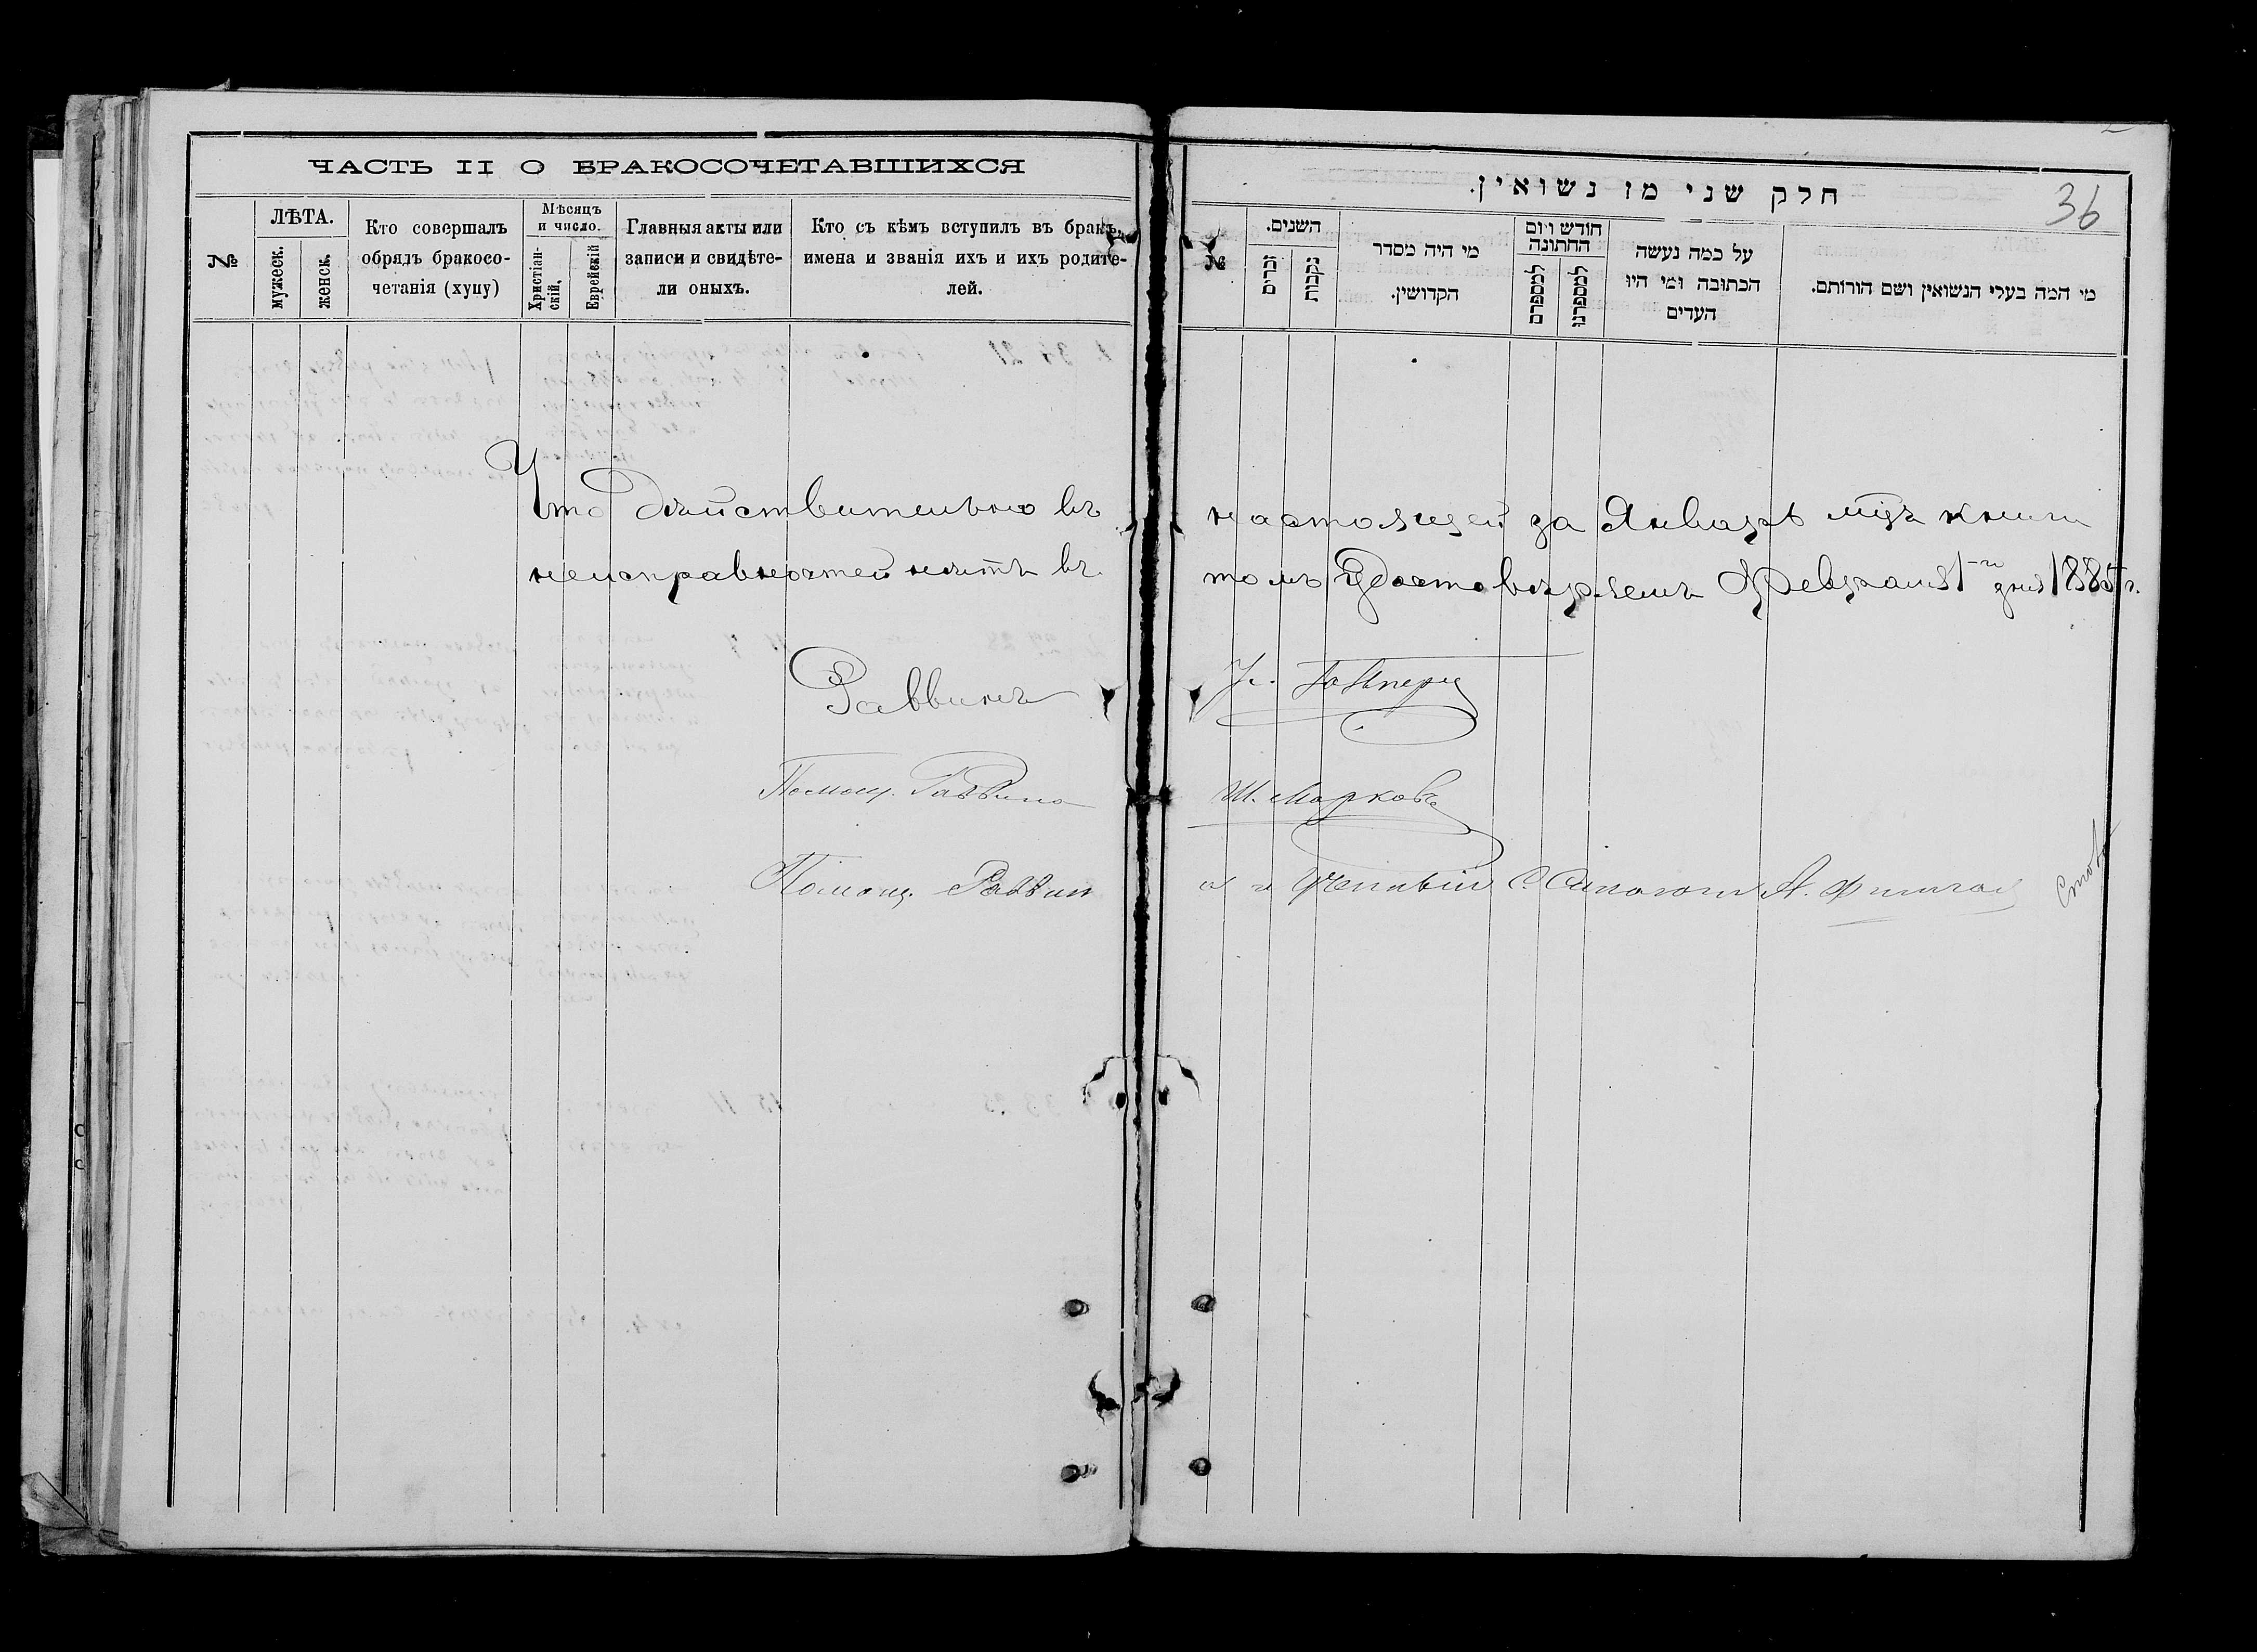 ЧАСТЬ II О БРАКОСОЧЕТАВШИХСЯ
№
ЛѢТА.
мужеск.
женск.
Кто совершалъ
обрядъ бракосо-
четанія (хупу)
Мѣсяцъ
и число.
Христіан-
скій,
Еврейскій
Главныя акты или
записи и свидѣте-
ли оныхъ.
Кто съ кѣмъ вступилъ въ бракъ,
имена и званія ихъ и ихъ родите-
лей.
חלק שני מן נשואין.
36
№
השנים.
זכרים
נקבות
מי היה מסדר
הקדושין.
חודש ויום
החתונה
למספרם
למספרנו
על כמה נעשה
הכתובה ומי היו
העדים
מי המה בעלי הנשואין ושם הורותם.
Что дѣйствительно въ настоящей за Январь мцъ книги
неисправностей нѣтъ въ томъ Удостовѣряемъ Февраля 1-го дня 1885 г.
Раввинъ
Помощ. Раввина Ш. Марковъ
Помощ. Раввин